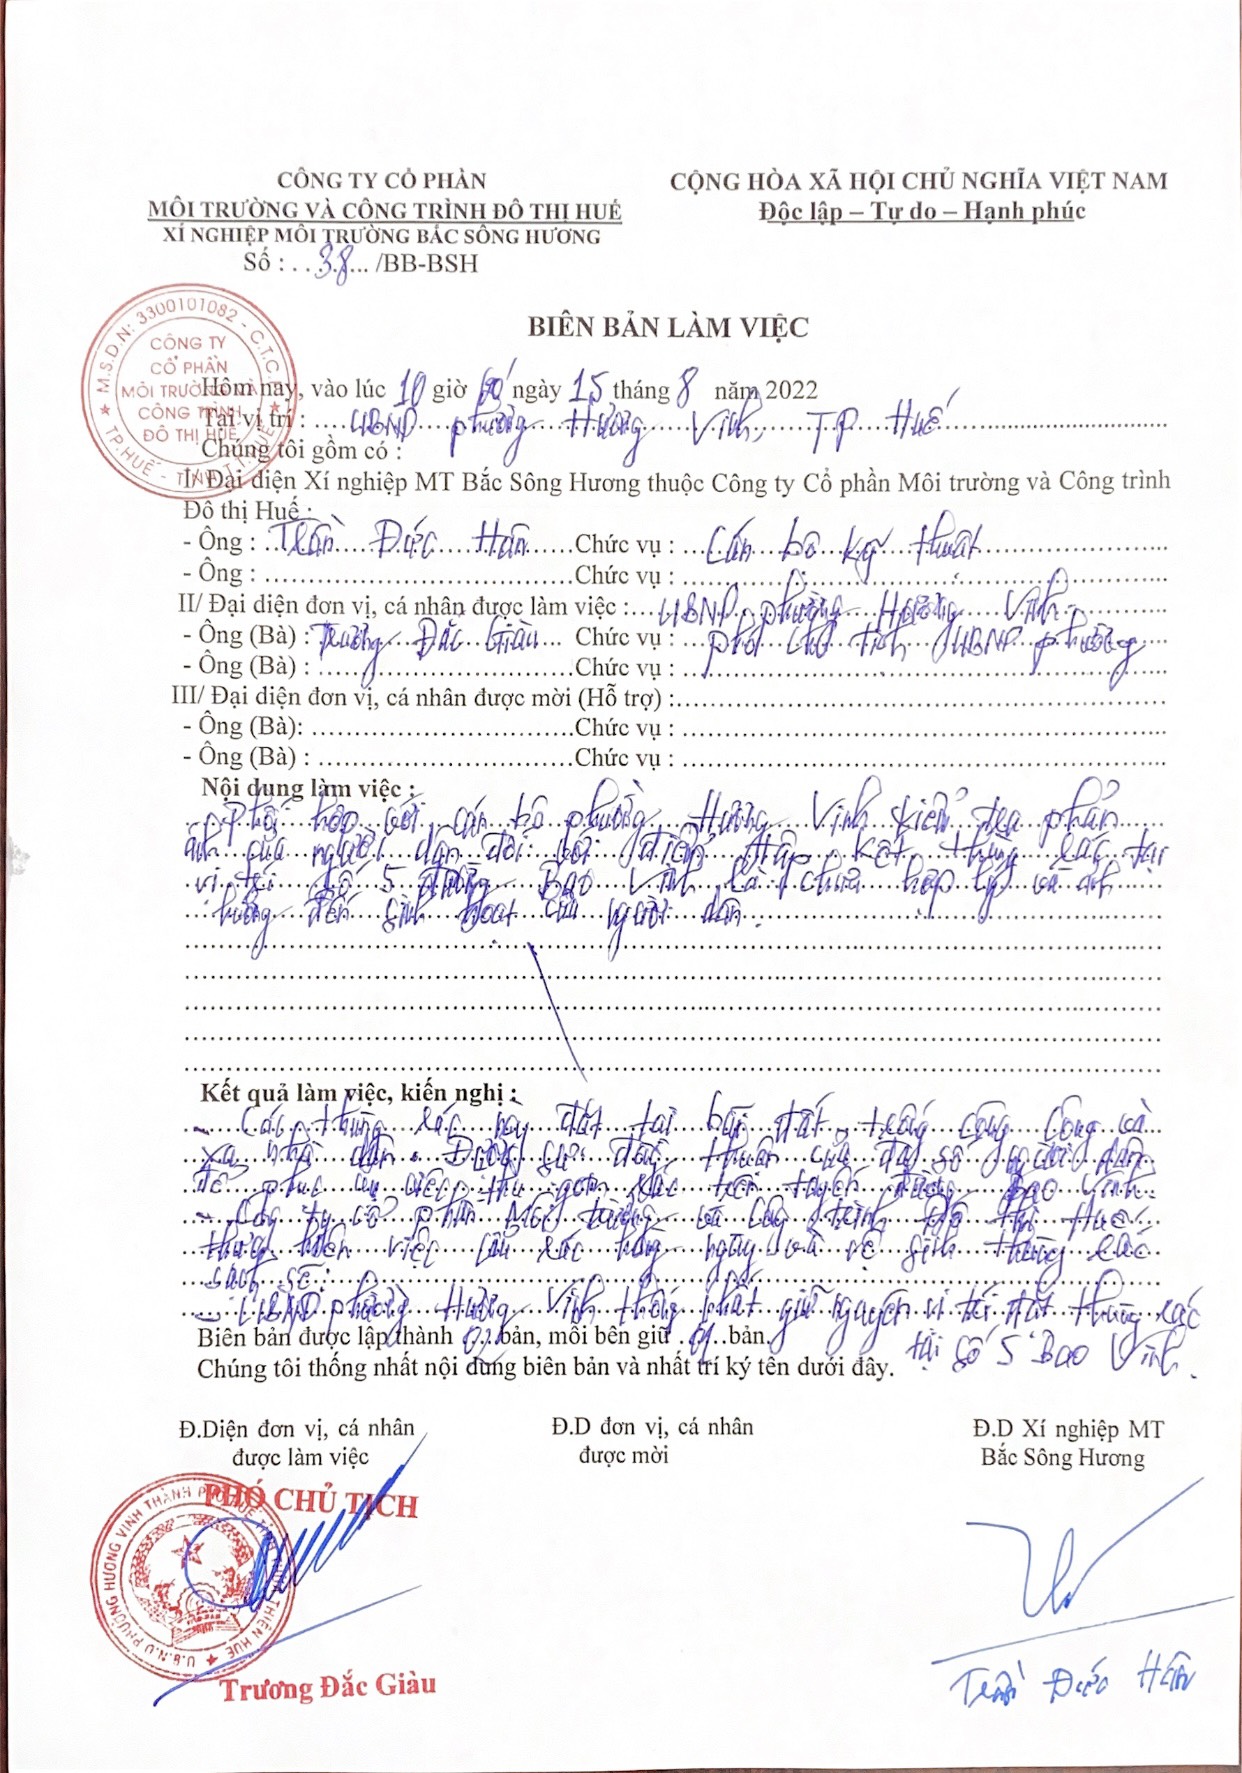 CÔNG TY CỔ PHẦN
MÔI TRƯỜNG VÀ CÔNG TRÌNH ĐÔ THỊ HUẾ
XÍ NGHIỆP MÔI TRƯỜNG BẮC SÔNG HƯƠNG
Số : . . 38... /BB-BSH
CỘNG HÒA XÃ HỘI CHỦ NGHĨA VIỆT NAM
Độc lập – Tự do – Hạnh phúc
M.S.D.N: 3300101082 - C.T.C.P
CÔNG TY
CỔ PHẦN
MÔI TRƯỜNG VÀ
CÔNG TRÌNH
ĐÔ THỊ HUẾ
TP.HUẾ - TỈNH T.T.HUẾ
BIÊN BẢN LÀM VIỆC
Hôm nay, vào lúc 10 giờ ngày 15 tháng 8 năm 2022
Tại vị trí : UBND phường Hương Vinh, TP Huế
Chúng tôi gồm có :
I/ Đại diện Xí nghiệp MT Bắc Sông Hương thuộc Công ty Cổ phần Môi trường và Công trình
Đô thị Huế :
- Ông : Trần Đức Hân Chức vụ : Cán bộ kỹ thuật
- Ông : Chức vụ :
II/ Đại diện đơn vị, cá nhân được làm việc : UBND phường Hương Vinh
- Ông (Bà) : Trương Đắc Giàu Chức vụ : phó chủ tịch UBND phường
- Ông (Bà) : Chức vụ :
III/ Đại diện đơn vị, cá nhân được mời (Hỗ trợ) :
- Ông (Bà): Chức vụ :
- Ông (Bà) : Chức vụ :
Nội dung làm việc :
Phối hợp với cán bộ phường Hương Vinh kiểm tra phản
ánh của người dân đối với điểm tập kết thùng rác tại
vị trí số 5 đường Bao Vinh là chưa hợp lý và ảnh
hưởng đến sinh hoạt của người dân.
Kết quả làm việc, kiến nghị :
- Các thùng rác này đặt tại bãi đất trống công cộng và
xa nhà dân. Được sự đồng thuận của đa số người dân
để phục vụ việc thu gom rác trên tuyến đường Bao Vinh.
- Công ty cổ phần Môi trường và Công trình Đô thị Huế
thực hiện việc lấy rác hàng ngày và vệ sinh thùng rác
sạch sẽ.
- UBND phường Hương Vinh thống nhất giữ nguyên vị trí đặt thùng rác
tại số 5 Bao Vinh.
Biên bản được lập thành 02 bản, mỗi bên giữ 01 bản.
Chúng tôi thống nhất nội dung biên bản và nhất trí ký tên dưới đây.
Đ.Diện đơn vị, cá nhân
được làm việc
Đ.D đơn vị, cá nhân
được mời
Đ.D Xí nghiệp MT
Bắc Sông Hương
PHÓ CHỦ TỊCH
U.B.N.D PHƯỜNG HƯƠNG VINH THÀNH PHỐ HUẾ THIÊN HUẾ
Trương Đắc Giàu
Trần Đức Hân